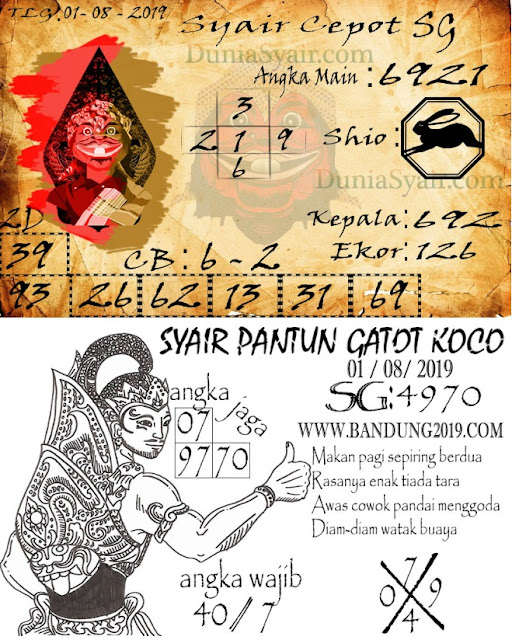 TLG : 01 - 08 - 2019
Syair Cepot SG
DuniaSyair.com
Angka Main : 6921
3
2 1 9
6
Shio :
DuniaSyair.com
Kepala : 692
Ekor : 126
2D
CB : 6 - 2
39
93 26 62 13 31 69
SYAIR PANTUN GATOT KOCO
01 / 08/ 2019
SG:4970
WWW.BANDUNG2019.COM
angka jaga
07
97 70
Makan pagi sepiring berdua
Rasanya enak tiada tara
Awas cowok pandai menggoda
Diam-diam watak buaya
angka wajib
40 / 7
7
0 9
4